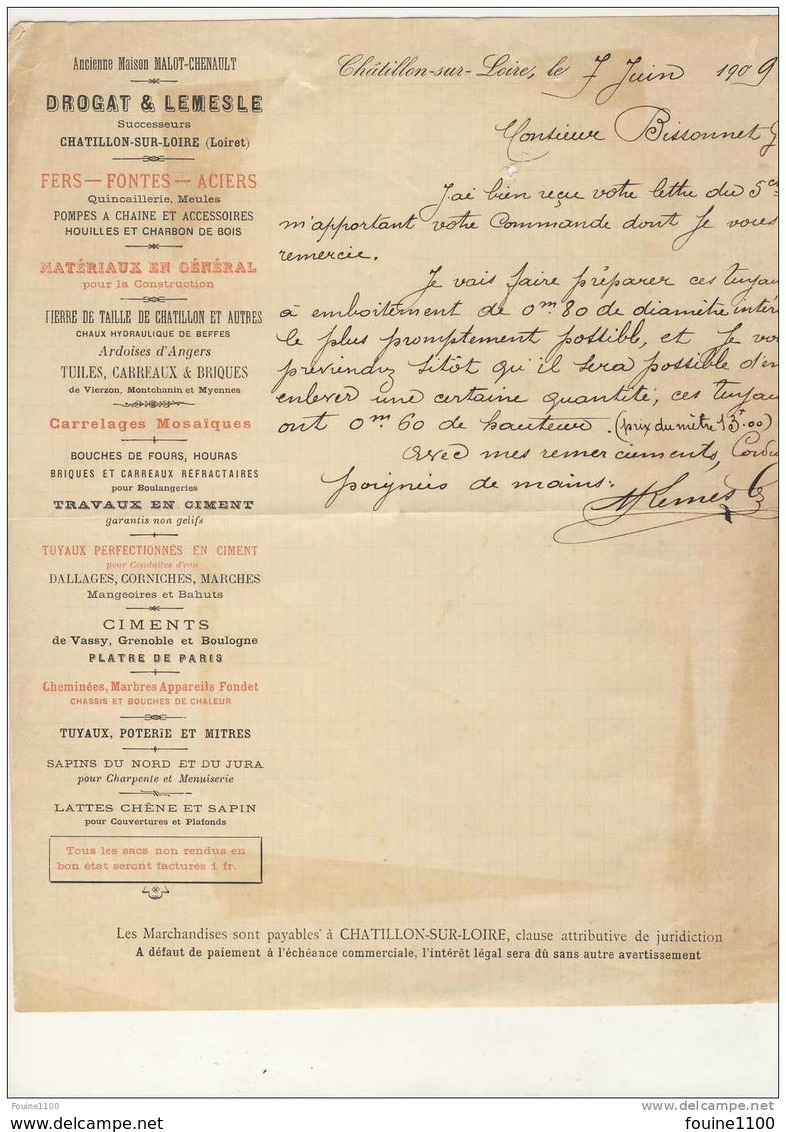 Ancienne Maison MALOT-CHENAULT
DROGAT & LEMESLE
Successeurs
CHATILLON-SUR-LOIRE (Loiret)
FERS — FONTES — ACIERS
Quincaillerie, Meules
POMPES A CHAINE ET ACCESSOIRES
HOUILLES ET CHARBON DE BOIS
MATÉRIAUX EN GÉNÉRAL
pour la Construction
PIERRE DE TAILLE DE CHATILLON ET AUTRES
CHAUX HYDRAULIQUE DE BEFFES
Ardoises d'Angers
TUILES, CARREAUX & BRIQUES
de Vierzon, Montchanin et Myennes
Carrelages Mosaïques
BOUCHES DE FOURS, HOURAS
BRIQUES ET CARREAUX RÉFRACTAIRES
pour Boulangeries
TRAVAUX EN CIMENT
garantis non gelifs
TUYAUX PERFECTIONNÉS EN CIMENT
pour Conduites d'eau
DALLAGES, CORNICHES, MARCHES
Mangeoires et Bahuts
CIMENTS
de Vassy, Grenoble et Boulogne
PLATRE DE PARIS
Cheminées, Marbres Appareils Fondet
CHASSIS ET BOUCHES DE CHALEUR
TUYAUX, POTERIE ET MITRES
SAPINS DU NORD ET DU JURA
pour Charpente et Menuiserie
LATTES CHÊNE ET SAPIN
pour Couvertures et Plafonds
Tous les sacs non rendus en
bon état seront facturés 1 fr.
Châtillon-sur-Loire, le 7 Juin 1909
Monsieur Bissonnet
J'ai bien reçu votre lettre du 5 ct
m'apportant votre Commande dont Je vous
remercie.
Je vais faire préparer ces tuyau
à emboitement de 0m 80 de diamètre intér
le plus promptement possible, et Je vo
previendrez sitôt qu'il sera possible d'en
enlever une certaine quantité, ces tuyau
ont 0m 60 de hauteur. (prix du mètre 13f.00)
Avec mes remerciements, Cordia
poignées de mains.
Lemesle
Les Marchandises sont payables à CHATILLON-SUR-LOIRE, clause attributive de juridiction
A défaut de paiement à l'échéance commerciale, l'intérêt légal sera dû sans autre avertissement
Fouine1100
delcampe.net
fouine1100